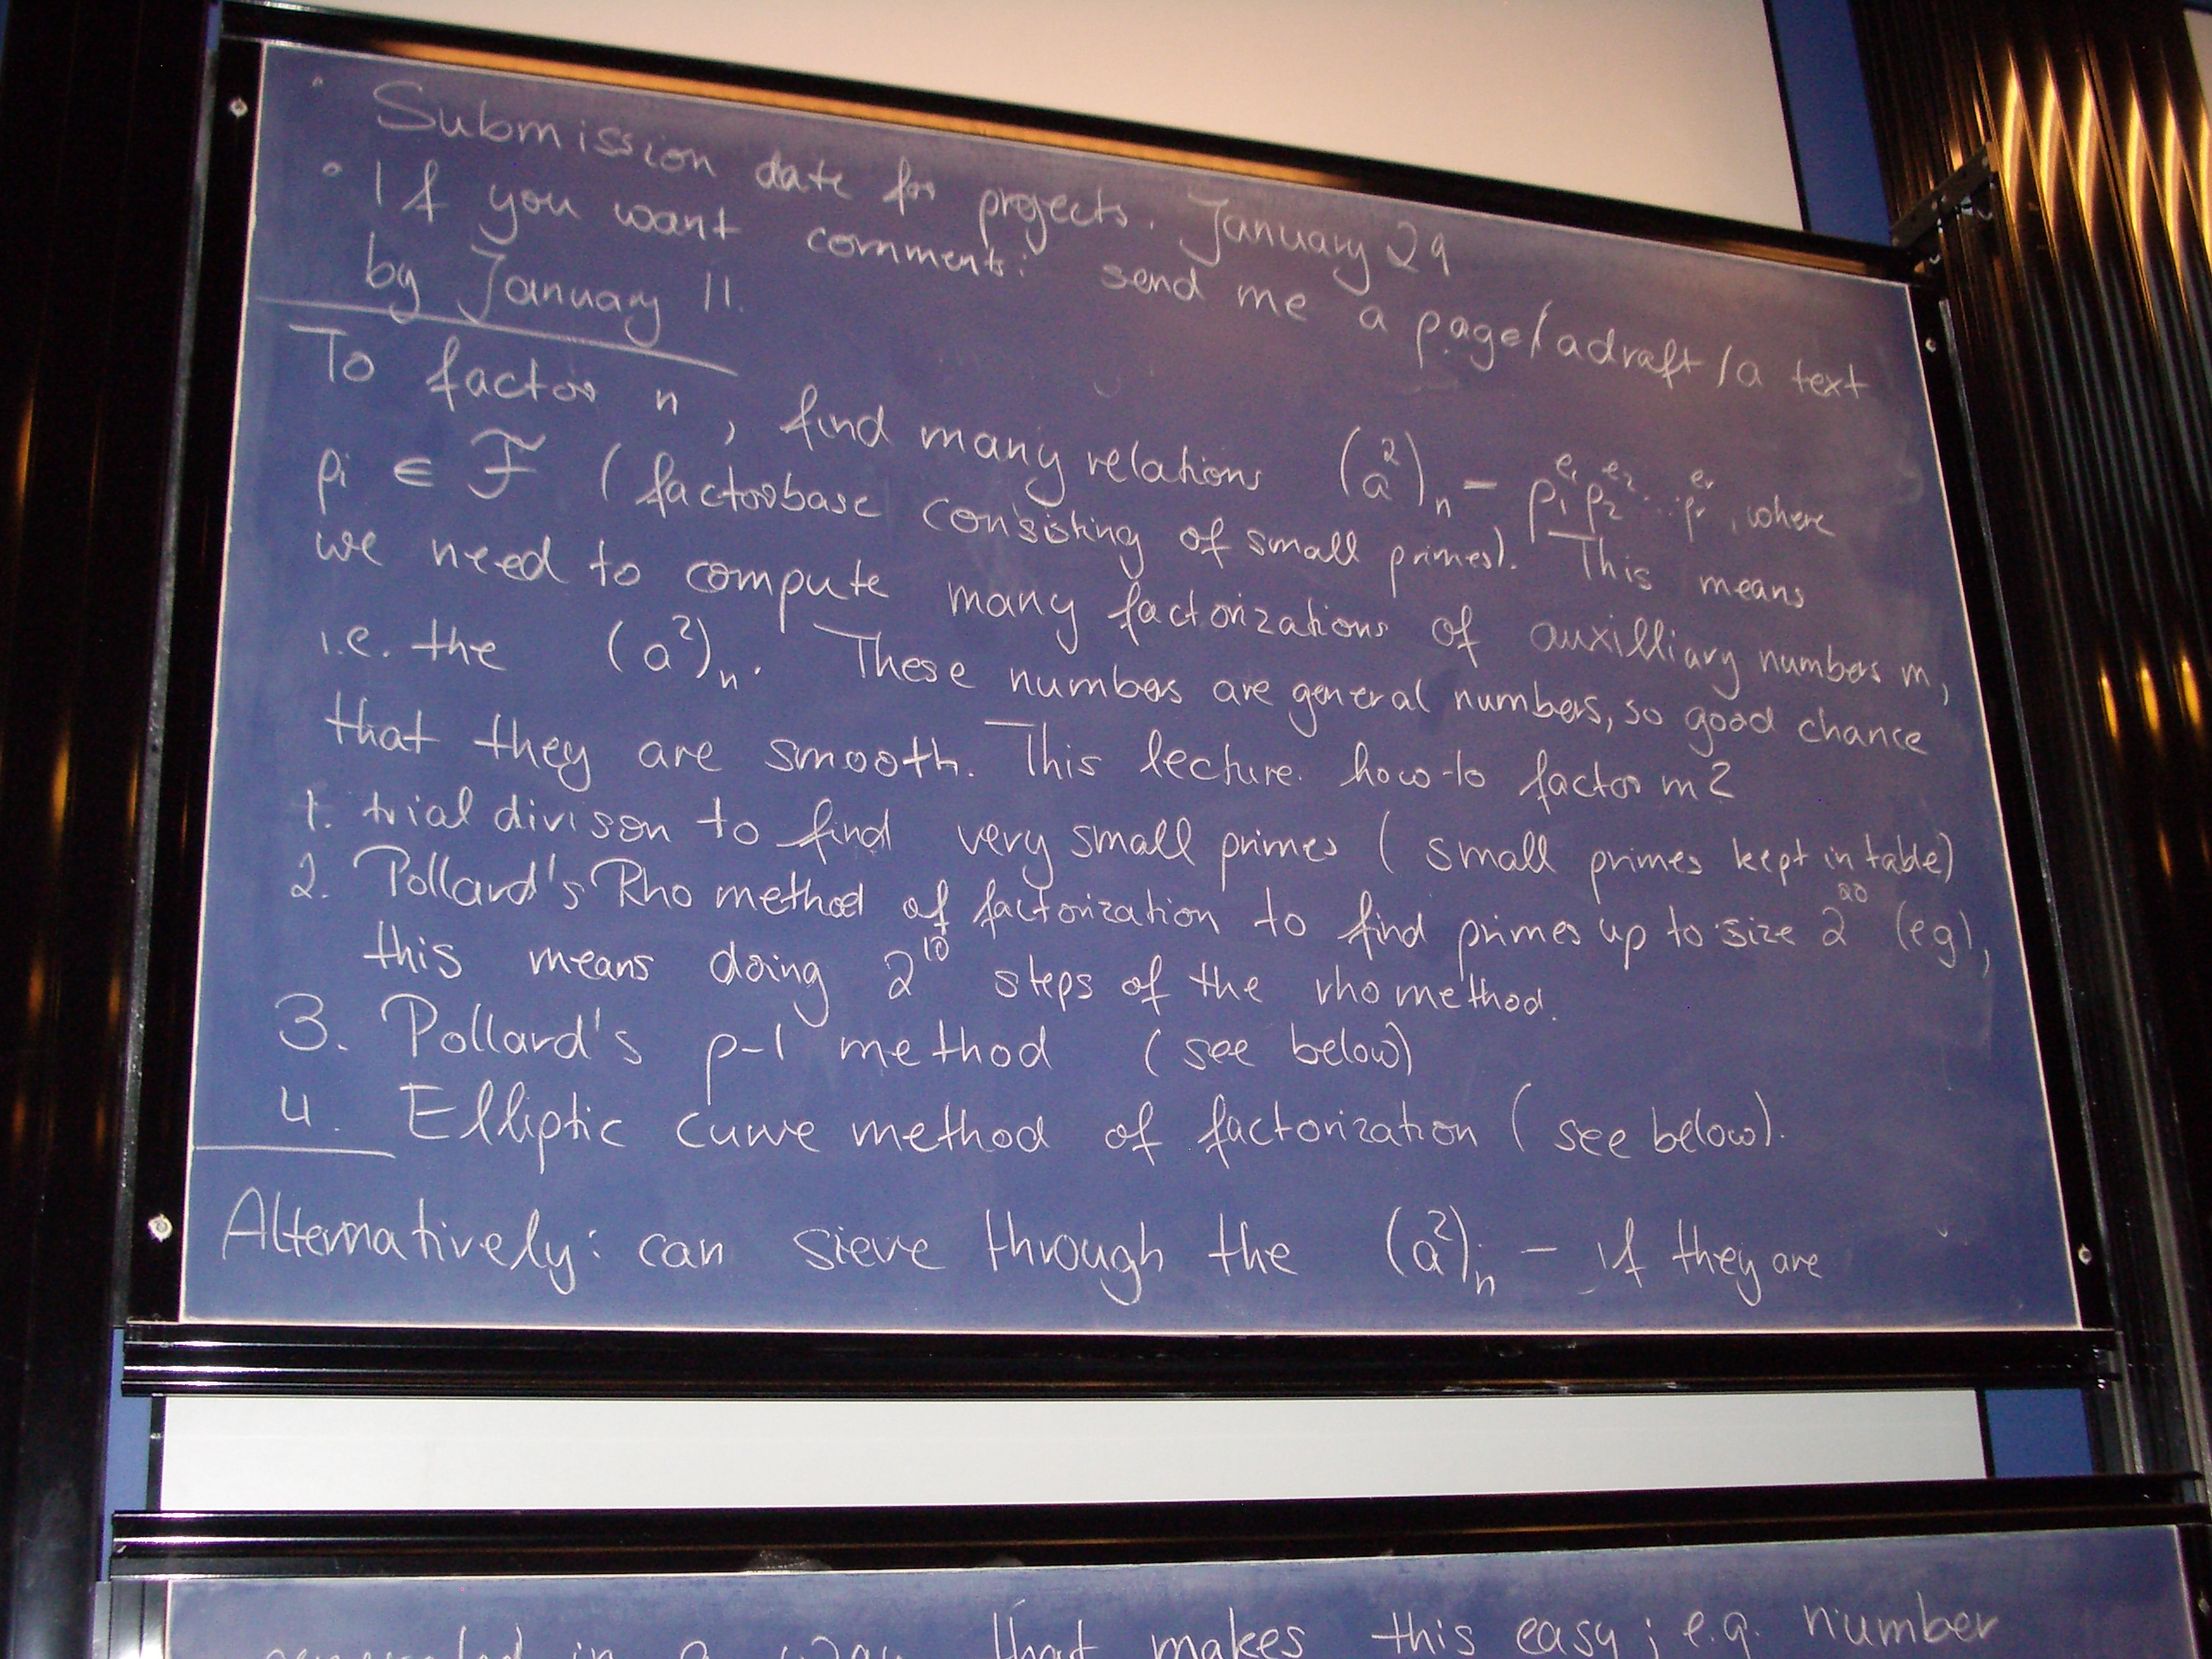 • Submission date for projects. January 29
• If you want comments: send me a page/a draft/a text
by January 11.
To factor n, find many relations (a²)ₙ = p₁^e₁ p₂^e₂ ... pᵣ^eᵣ, where
pᵢ ∈ F (factorbase consisting of small primes). This means
we need to compute many factorizations of auxilliary numbers m,
i.e. the (a²)ₙ. These numbers are general numbers, so good chance
that they are smooth. This lecture: how to factor m?
1. trial divison to find very small primes (small primes kept in table)
2. Pollard's Rho method of factorization to find primes up to size 2²⁰ (eg),
this means doing 2¹⁰ steps of the rho method.
3. Pollard's p-1 method (see below)
4. Elliptic curve method of factorization (see below).
Alternatively: can sieve through the (a²)ₙ – if they are
in a way that makes this easy; e.g. number